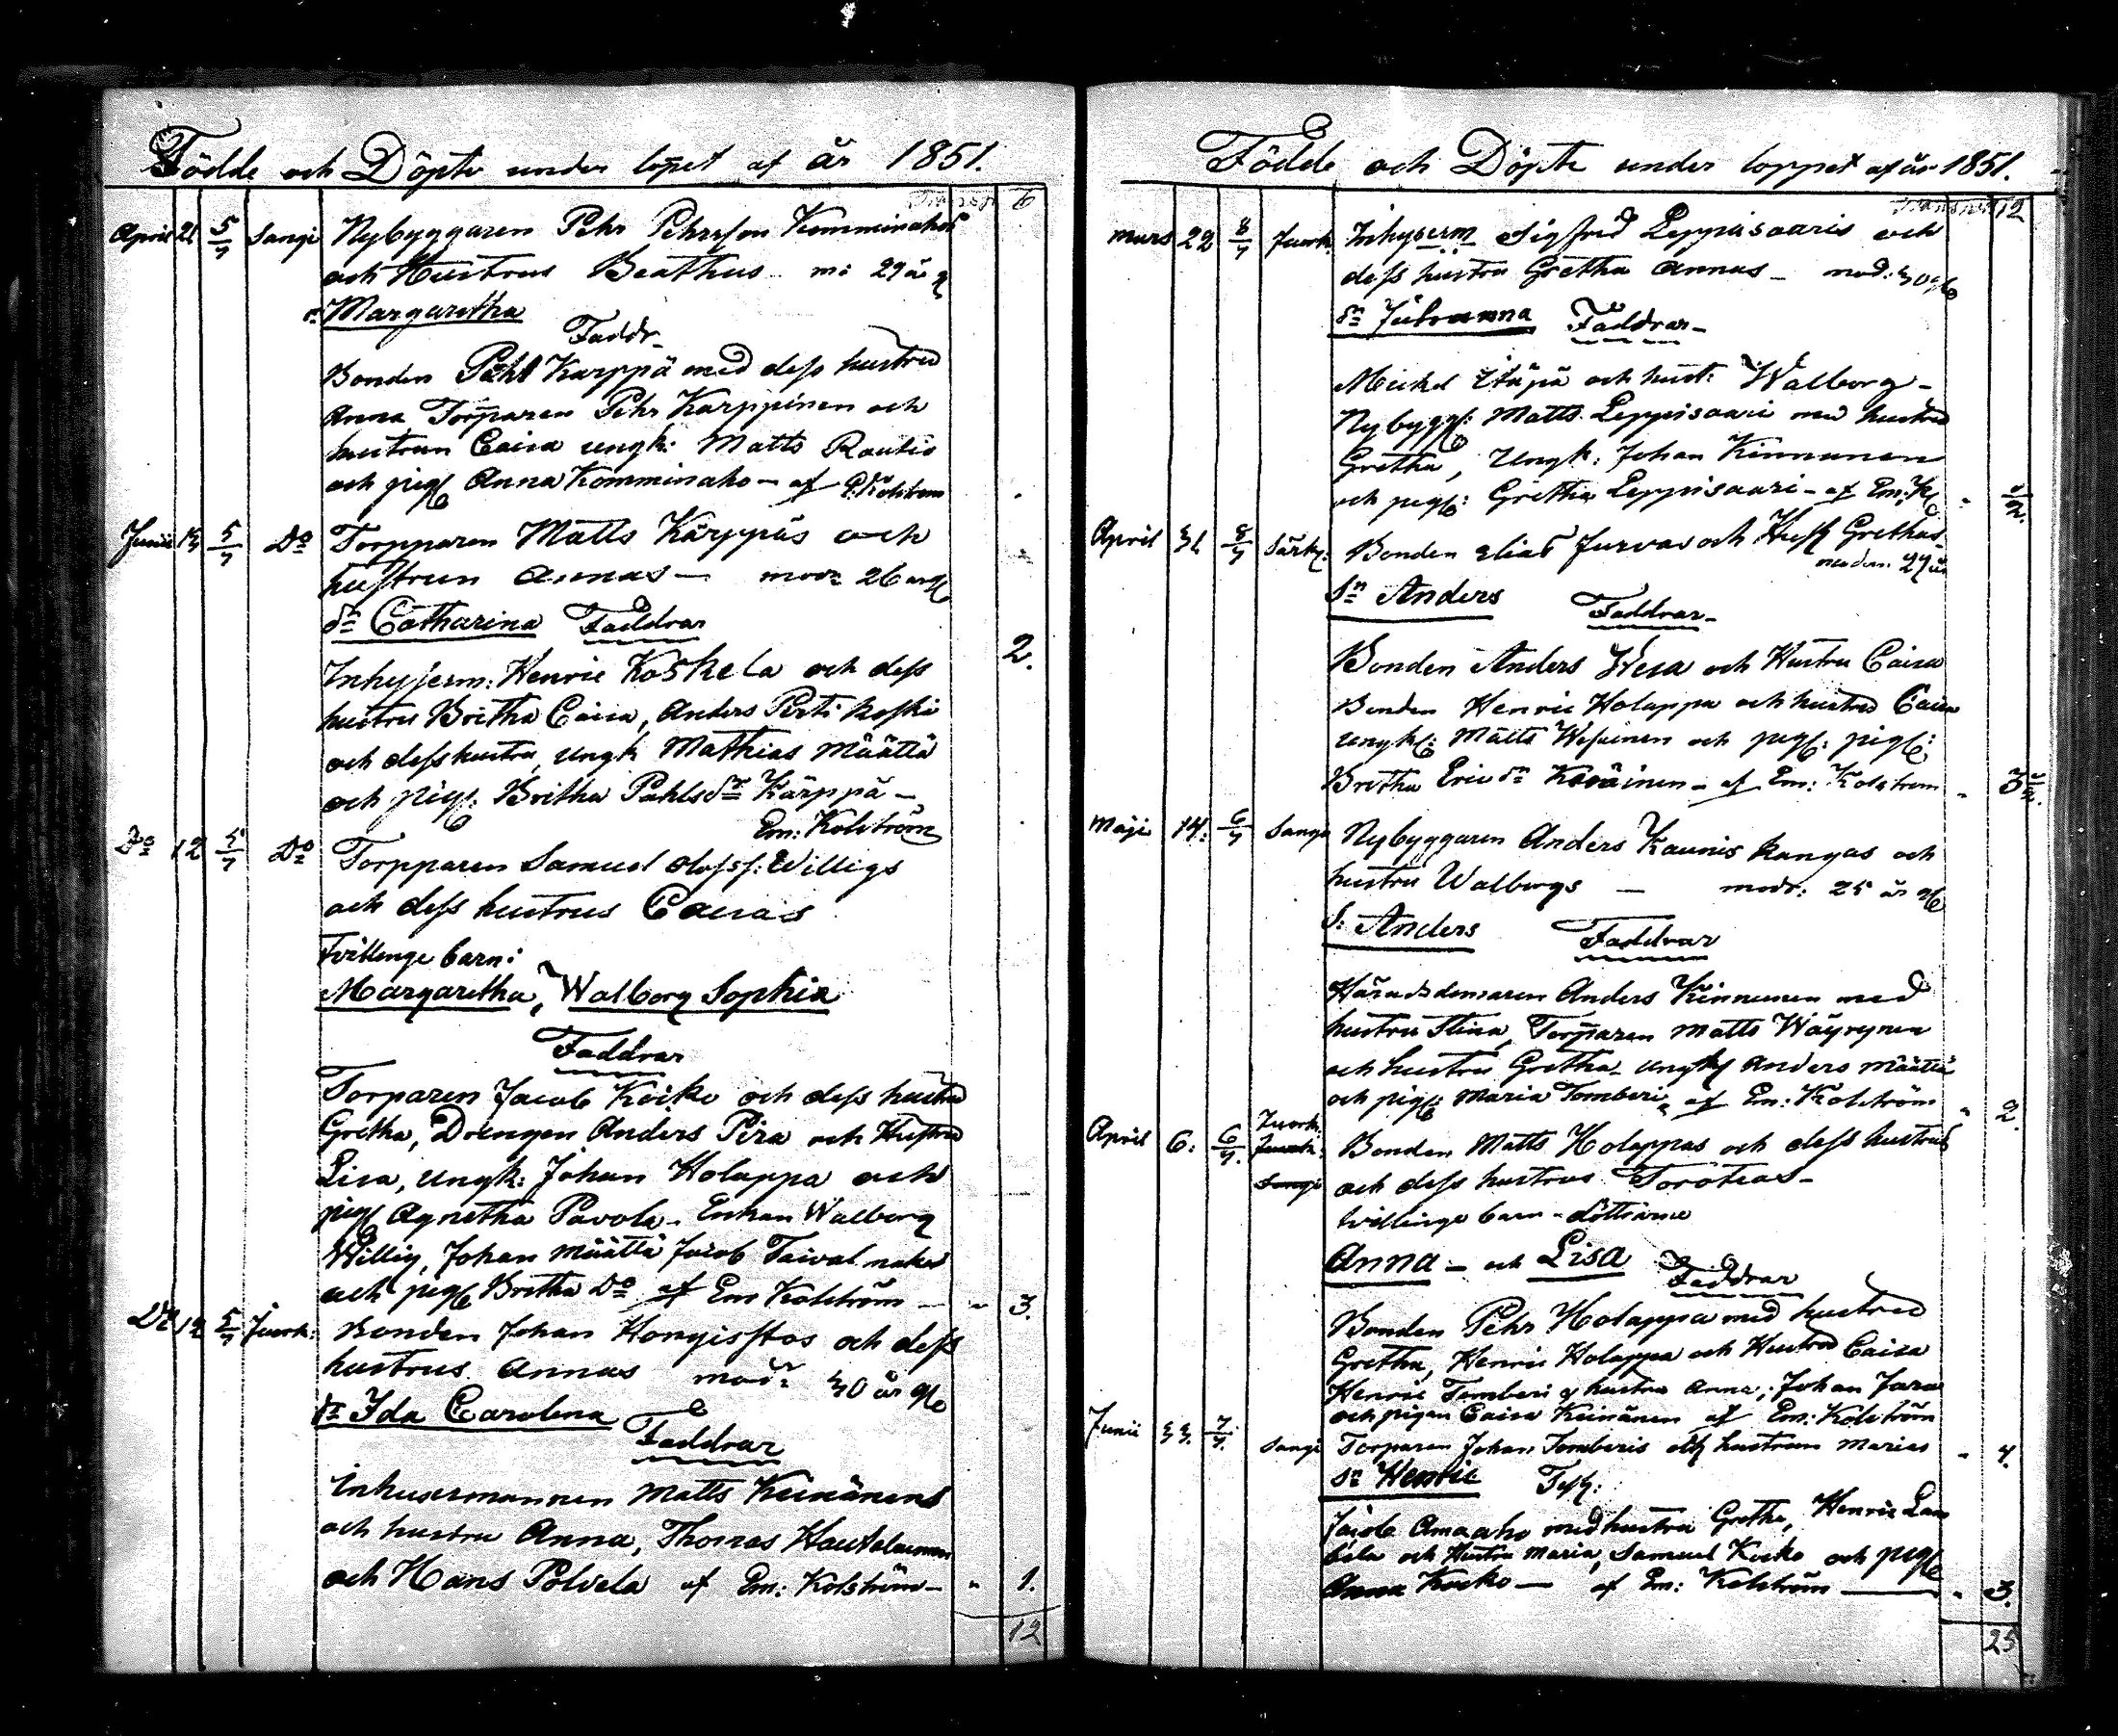 Födde och Döpte under lopet af år 1851.
Transp: 6
April 21 5/7 Sangi Nybyggaren Pehr Pehrsson Komminahos
och Hustrus Beathus m: 29 år gl
Margaretha
Faddr
Bonden Påhl Karppä med dess hustru
Anna Torparen Pehr Karppinen och
hustrun Caisa ungk: Matts Rautio
och pig Anna Komminaho - af E: Kolström
Junii 5/7 Do Torpparen Matts Kärppäs och
hustrun Annas - modr 26 år gl
dr Catharina Faddrar
2.
Inhyserm: Henric Koskela och dess
hustru Britha Caisa, Anders Pertikoski
och dess hustru, ungk Mathias Määttä
och pig: Britha Pahlsdr Kärppä -
Em: Kolström
Do 12 5/7 Do Torpparen Samuel Olofss: Willigs
och dess hustrus Caisas
Tvillinge barn:
Margaretha, Walborg Sophia
Faddrar
Torparen Jacob Koiko och dess hustru
Gretha, Drengen Anders Pira och Hustru
Lisa, ungk: Johan Holappa och
pig Agnetha Pavola. Enkan Walborg
Willig, Johan Määttä Jacob Taival
och pig Britha Do af Em Kolström - 3.
Do 5/7 Juork: Bonden Johan Hongisstos och dess
hustrus Annas modr 30 år gl
dr Ida Carolina
Faddrar
Inhusermannen Matts Keinänens
och hustru Anna, Thomas
och Hans Polvela af Em: Kolström - 1.
12
Födde och Döpte under loppet af år 1851.
Transport 12
Mars 22 8/7 Juork. Inhyserm Sigfrid Leppisaaris och
dess hustru Gretha Annas - mod: 30 gl
dr Faddrar -
Mickel Itäpä och hust: Walborg -
Nybygg: Matts Leppisaari med hustru
Gretha, Ungk: Johan Kinnunen
och pig: Gretha Leppisaari - af Em: K
April 31 8/7 Särk: Bonden Elias Jurvas och Hust Grethas
modern 27 år
Sn Anders Faddrar -
Bonden Anders Wesa och Hustru Caisa
Bonden Henric Holappa och hustru Caisa
ungk: Matts Wesainen och pig: pig:
Britha Ericsdr - af Em: Kolström - 3
Maji 14: 6/7 Sangi Nybyggaren Anders Kauniskangas och
hustru Walborgs - modr: 25 år gl
S: Anders Faddrar
Häradsdomaren Anders Kinnunen med
hustru Stina, Torparen Matts Wäyrynen
och hustru Gretha ungk Anders Määttä
och pig: Maria Tomberi, af Em: Kolström 2.
Juork.
April 6. 6/7. Juork: Bonden Matts Holappas och dess hustrus
Sangi och dess hustrus Toroteas -
tvillinge barn - döttrarne
Anna - och Lisa Faddrar
Bonden Pehr Holappa med hustru
Gretha, Henric Holappa och Hustru Caisa
Henric Tomberi hustru Anna, Johan Jurva
och pigan Caisa Keinänen af Em: Kolström
Junii 7/7. Sangi Torparen Johan Tomberis och hustrun Marias - 4.
Sn Henric Test:
Jacob Amaaho med hustru Gretha, Henric
och Hustru Maria, Samuel Koiko och pig
Anna Koiko - af Em: Kolström - 3.
25